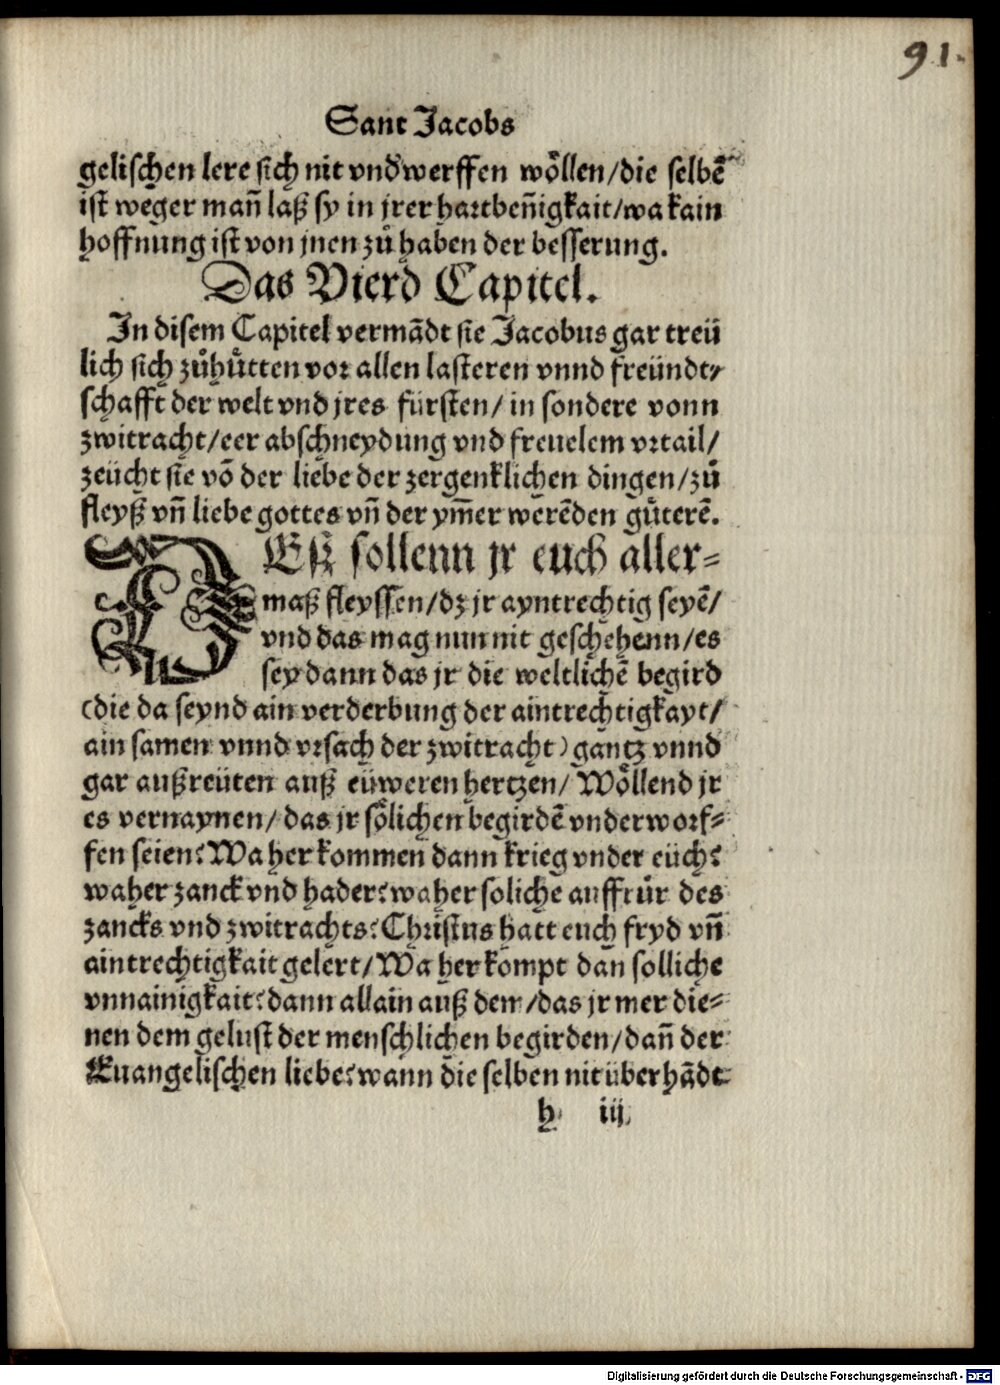 91.
Sant Jacobs
gelischen lere sich nit vnd̄werffen wöllen/die selbē
ist weger man̄ laß sy in jrer hartben̄igkait/wa kain
hoffnung ist von jnen zů haben der besserung.
Das Vierd Capitel.
In disem Capitel vermādt sie Jacobus gar treü
lich sich zůhütten vor allen lasteren vnnd freündt/
schafft der welt vnd jres fürsten/ in sondere vonn
zwitracht/eer abschneydung vnd freuelem vrtail/
zeücht sie vō der liebe der zergenklichen dingen/zů
fleyß vn̄ liebe gottes vn̄ der ym̄er werēden gůterē.
DEß sollenn jr euch aller⸗
maß fleyssen/dz jr ayntrechtig seyē/
vnd das mag nun nit geschehenn/es
sey dann das jr die weltlichē begird
(die da seynd ain verderbung der aintrechtigkayt/
ain samen vnnd vrsach der zwitracht) gantz vnnd
gar außreüten auß eüweren hertzen/ Wöllend jr
es vernaynen/ das jr sölichen begirdē vnderworf⸗
fen seien? Wa her kommen dann krieg vnder eüch?
waher zanck vnd hader? waher soliche auffrůr des
zancks vnd zwitrachts? Christus hatt euch fryd vn̄
aintrechtigkait gelert/Wa her kompt dan solliche
vnnainigkait? dann allain auß dem/das jr mer die⸗
nen dem gelust der menschlichen begirden/dan̄ der
Euangelischen liebe? wann die selben nit überhādt
h iij
Digitalisierung gefördert durch die Deutsche Forschungsgemeinschaft - DFG